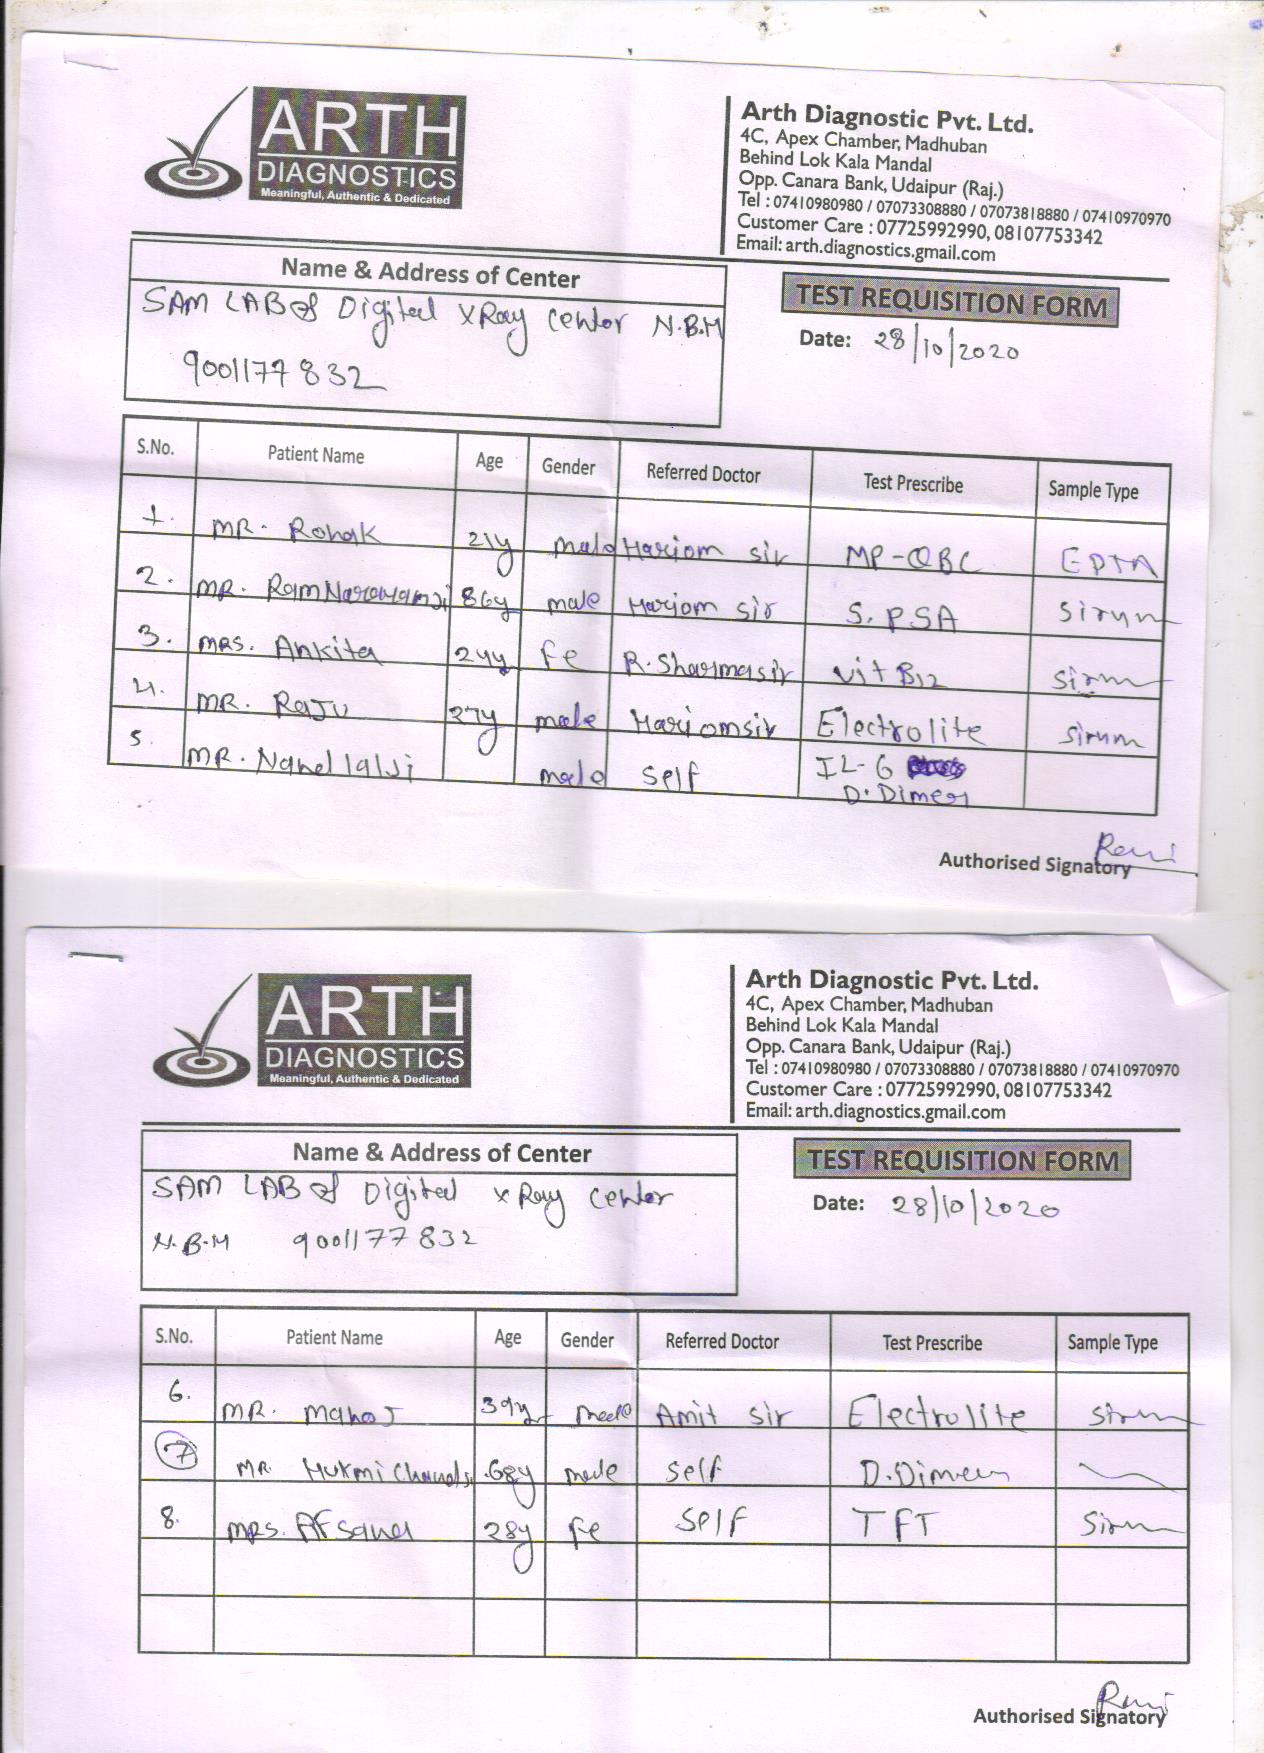 ARTH
DIAGNOSTICS
Meaningful, Authentic & Dedicated
Arth Diagnostic Pvt. Ltd.
4C, Apex Chamber, Madhuban
Behind Lok Kala Mandal
Opp. Canara Bank, Udaipur (Raj.)
Tel : 07410980980 / 07073308880 / 07073818880 / 07410970970
Customer Care : 07725992990, 08107753342
Email: arth.diagnostics.gmail.com
Name & Address of Center
SAM LAB & Digital XRay Center N.B.H
9001177832
TEST REQUISITION FORM
Date: 28/10/2020
S.No. Patient Name Age Gender Referred Doctor Test Prescribe Sample Type
1. MR. Rohak 21y male Hariom sir MP-QBC EDTA
2. MR. RamNarayanJi 86y male Hariom sir S. PSA Sirum
3. MRS. Ankita 24y Fe R. Sharma sir Vit B12 Sirum
4. MR. RAJU 27y male Hariom sir Electrolite Sirum
5. MR. Nanellalji male Self IL-6
D. Dimer
Authorised Signatory
ARTH
DIAGNOSTICS
Meaningful, Authentic & Dedicated
Arth Diagnostic Pvt. Ltd.
4C, Apex Chamber, Madhuban
Behind Lok Kala Mandal
Opp. Canara Bank, Udaipur (Raj.)
Tel : 07410980980 / 07073308880 / 07073818880 / 07410970970
Customer Care : 07725992990, 08107753342
Email: arth.diagnostics.gmail.com
Name & Address of Center
SAM LAB & Digital XRay Center
N.B.H 9001177832
TEST REQUISITION FORM
Date: 28/10/2020
S.No. Patient Name Age Gender Referred Doctor Test Prescribe Sample Type
6. MR. MahoJ 39y male Amit sir Electrolite Sirum
7 MR. Hukmi Chand 68y male Self D. Dimer
8. MRS. AFsana 28y Fe Self TFT Sirum
Authorised Signatory